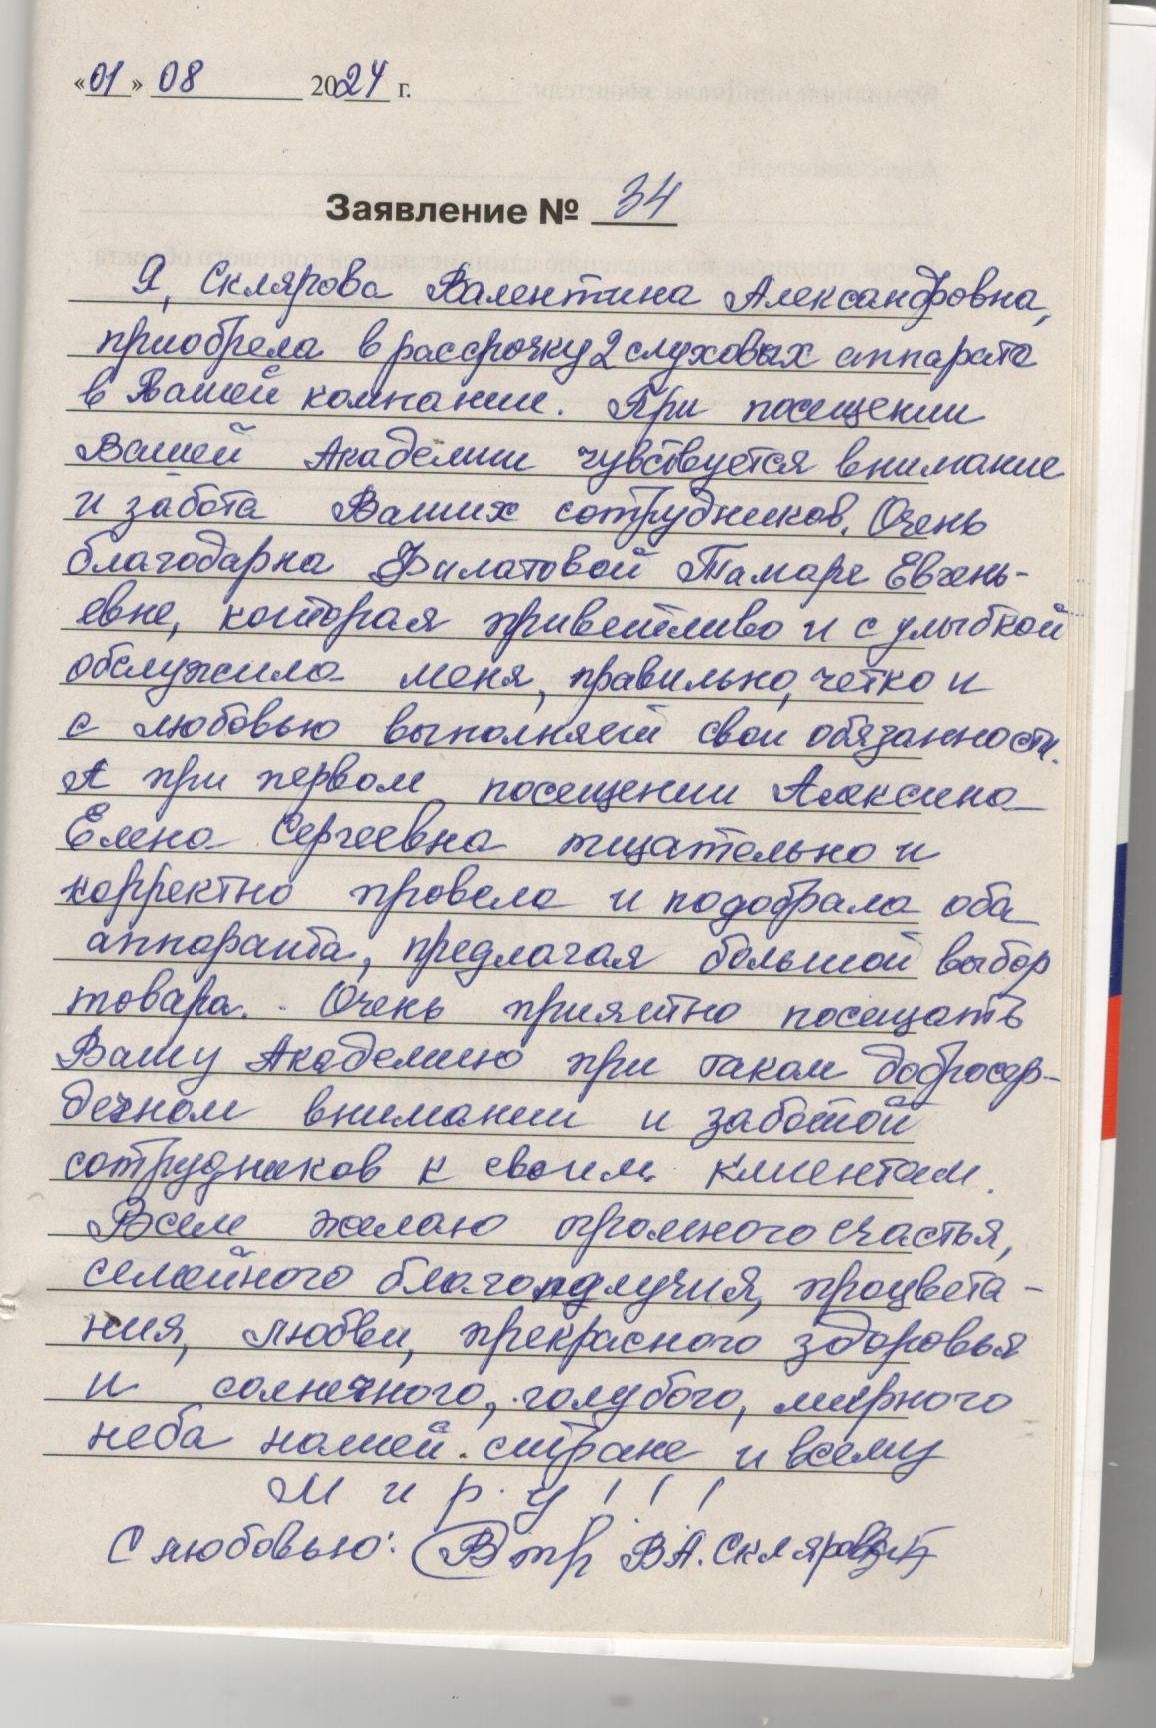 «01» 08 2024 г.
Заявление № 34
Я, Склярова Валентина Александровна,
приобрела в рассрочку 2 слуховых аппарата
в Вашей компании. При посещении
Вашей Академии чувствуется внимание
и забота Ваших сотрудников. Очень
благодарна Филатовой Тамаре Евгень-
евне, которая приветливо и с улыбкой
обслужила меня, правильно, четко и
с любовью выполняет свои обязанности.
А при первом посещении Алексина
Елена Сергеевна тщательно и
корректно провела и подобрала оба
аппарата, предлагая большой выбор
товара. Очень приятно посещать
Вашу Академию при таком добросер-
дечном внимании и заботой
сотрудников к своим клиентам.
Всем желаю огромного счастья,
семейного благополучия, процвета-
ния, любви, прекрасного здоровья
и солнечного, голубого, мирного
неба нашей стране и всему
М и р у ! ! !
С любовью: В.А. Склярова